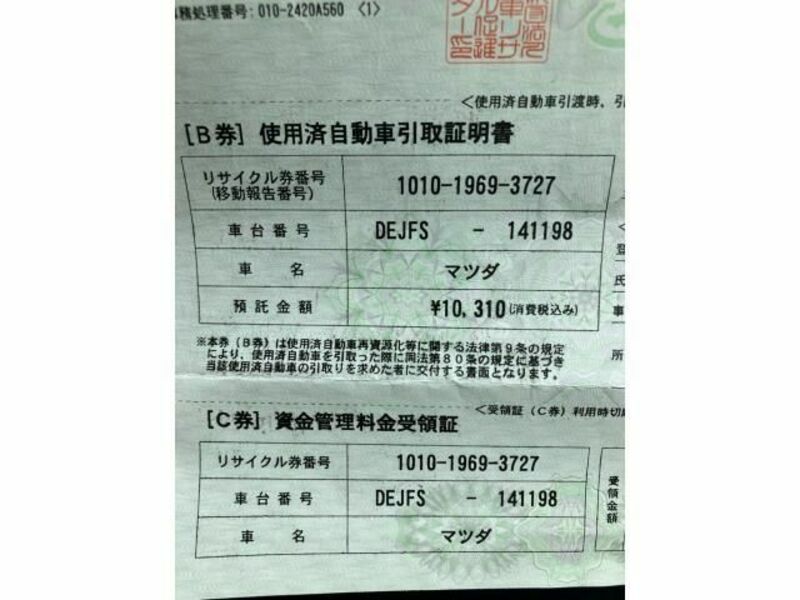 務処理番号: 010-2420A560 〈1〉
＜使用済自動車引渡時、引
[B券] 使用済自動車引取証明書
リサイクル券番号
(移動報告番号)
1010-1969-3727
車台番号 DEJFS - 141198
車名 マツダ
預託金額 ¥10,310(消費税込み)
※本券（B券）は使用済自動車再資源化等に関する法律第9条の規定
により、使用済自動車を引取った際に同法第80条の規定に基づき
当該使用済自動車の引取りを求めた者に交付する書面となります。
＜受領証（C券）利用時切
[C券] 資金管理料金受領証
リサイクル券番号 1010-1969-3727
車台番号 DEJFS - 141198
車名 マツダ
受領金額
登
氏
事
所